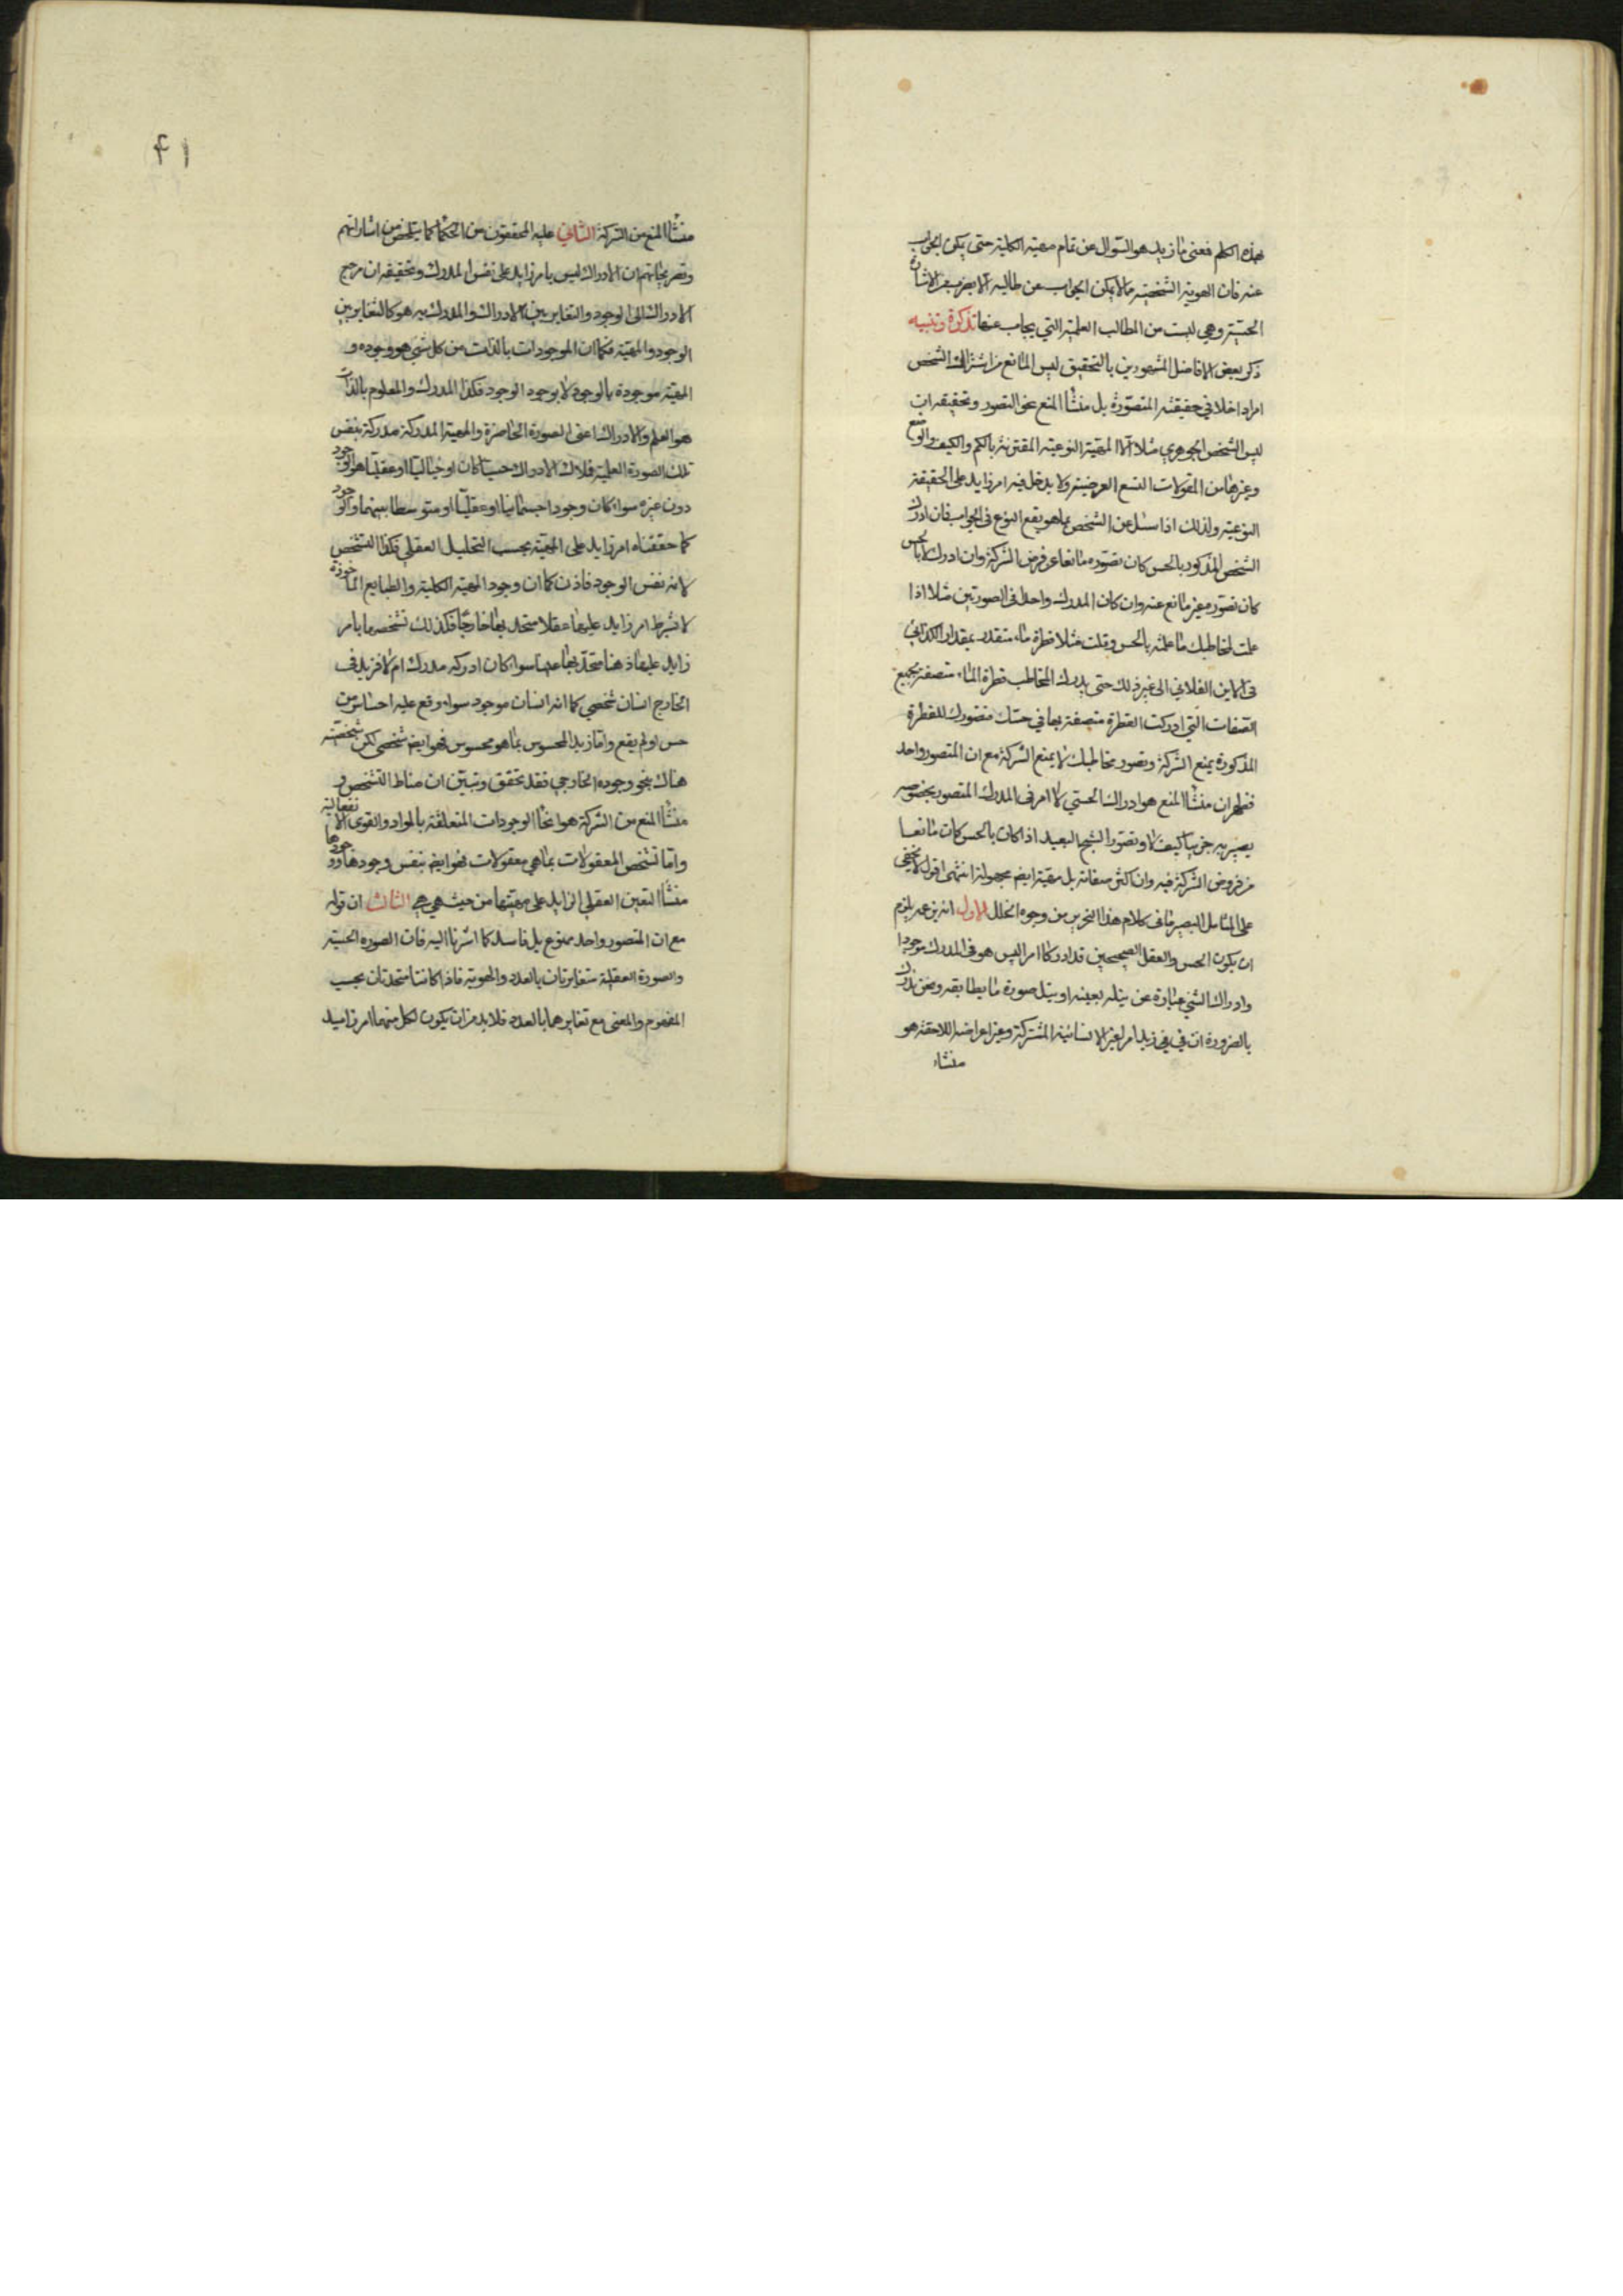 هذه الكلم فمعنى ما زيد هو السؤال عن تمام مهيته الكلية حتى يمكن الجواب
عنه فان الهوية الشخصية مما لا يمكن الجواب عن طالبه الا بضرب من الاشارة
الحسية وهي ليست من المطالب العلمية التي يجاب عنها تذكرة وتنبيه
ذكر بعض الافاضل المشهورين بالتحقيق ليس المانع من اشتراك الشخص
امرا داخلا في حقيقته المتصورة بل منشأ المنع نحو التصور وتحقيقه ان
ليس الشخص الجوهري مثلا الا المهية النوعية المقترنة بالكم والكيف والوضع
وغيرها من المقولات التسع العرضية ولا يدخل فيه امر زايد على الحقيقة
النوعية ولذلك اذا سئل عن الشخص بما هو يقع النوع في الجواب فان ادرك
الشخص المذكور بالحس كان تصوره مانعا عن فرض الشركة وان ادرك لا بالحس
كان تصوره غير مانع عنه وان كان المدرك واحدا في الصورتين مثلا اذا
علمت لمخاطبك ما علمته بالحس وقلت مثلا قطرة ماء متقدر بمقدار الكذائي
في الاين الفلاني الى غير ذلك حتى يدرك المخاطب قطرة الماء متصفة بجميع
الصفات التي ادركت القطرة متصفة بها في حسك فتصورك للقطرة
المذكورة يمنع الشركة وتصور مخاطبك لا يمنع الشركة مع ان المتصور واحد
فظهر ان منشأ المنع هو ادراك الحسي لا امر في المدرك المتصور بخصوصه
يصير به جزييا كيف لا وتصور الشبح البعيد اذا كان بالحس كان مانعا
من فروض الشركة فيه وان اكثر صفاته بل مهيته ايضم مجهولة انتهى اقول لا يخفى
على المتامل البصير ما في كلام هذا النحرير من وجوه الخلل الاول انه يلزم
ان يكون الحس والعقل الصحيحين قد ادركا امرا ليس هو في المدرك موجودا
وادراك الشي عبارة عن نيله بعينه او بنيل صورة ما يطابقه ونحن ندرك
بالضرورة ان في زيد امرا غير الانسانية المشتركة وغير اعراضه اللاحقة هو
منشاء
۴۱
منشأ المنع من الشركة الثاني عليه المحققون من الحكما كما يتلخص من اشاراتهم
وتصريحاتهم ان الادراك ليس بامر زايد على نفس المدرك وتحقيقه ان مرجع
الادراك الى الوجود والتغاير بين الادراك والمدرك به هو كالتغاير بين
الوجود والمهية فكما ان الموجودات بالذات من كل شي هو وجوده و
المهية موجودة بالوجود لا بوجود الوجود فكذا المدرك والمعلوم بالذات
هو العلم والادراك اعنى الصورة الحاضرة والمهية المدركة مدركة بنفس
تلك الصورة العلمية فلاك الادراك حسيا كان او خياليا او عقليا هو الوجود
دون غيره سواء كان وجودا جسمانيا او عقليا او متوسطا بينهما والوجود
كما حققناه امر زايد على المهية بحسب التحليل العقلي فكذا التشخص
لانه نفس الوجود فاذن كما ان وجود المهية الكلية والطبايع الماخوذة
لا بشرط امر زايد عليها عقلا متحد بها خارجا فكذلك تشخصها بامر
زايد عليها ذهنا متحد بها عينا سواء كان ادركه مدرك ام لا فزيد في
الخارج انسان شخصي كما انه انسان موجود سواء وقع عليه احساس من
حس او لم يقع واما زيد المحسوس بما هو محسوس فهو ايضم شخصي لكن شخصيته
هناك بنحو وجوده الخارجي فقد تحقق وتبين ان مناط التشخص و
منشأ المنع من الشركة هو انحا الوجودات المتعلقة بالمواد والقوى الانفعالية
واما تشخص المعقولات بما هي معقولات فهو ايضم بنفس وجودها ووجودها
منشأ التعين العقلي الزايد على مهيتها من حيث هي هي الثالث ان قوله
مع ان المتصور واحد ممنوع بل فاسد كما اشرنا اليه فان الصورة الحسية
والصورة العقلية متغايرتان بالعدد والهوية فاذا كانتا متحدتان بحسب
المفهوم والمعنى مع تغايرهما بالعدد فلابد من ان يكون لكل منهما امر زايد